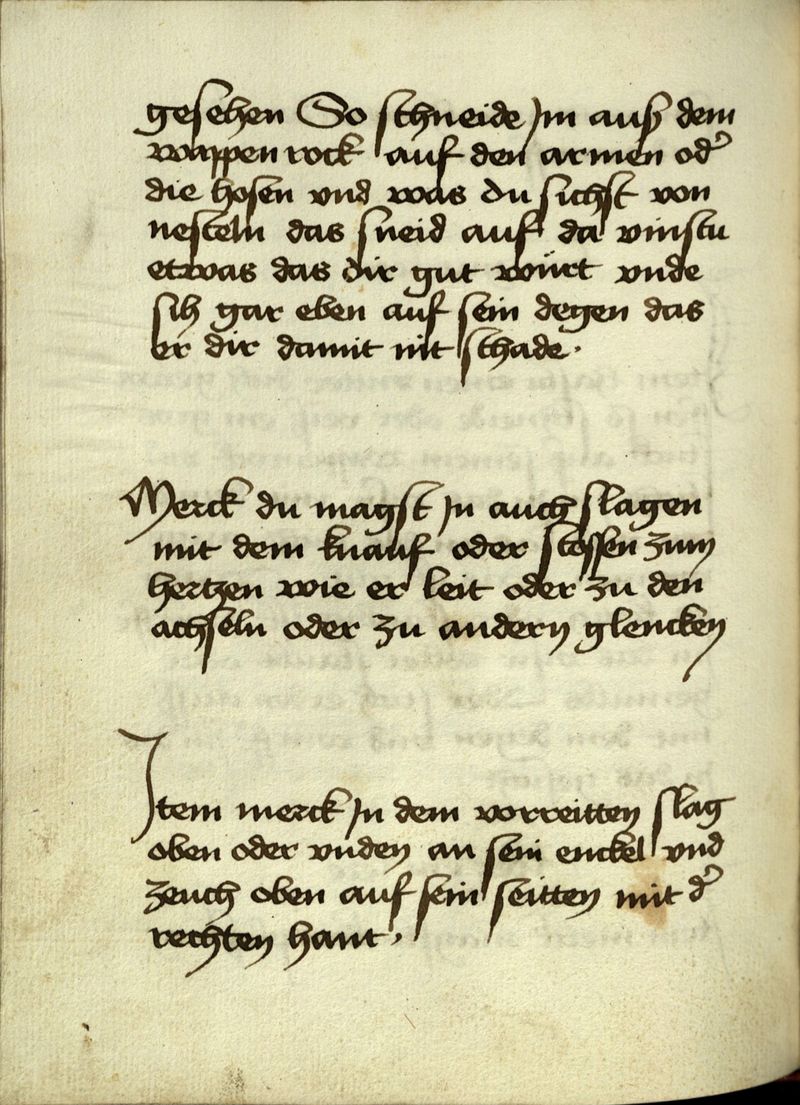 gesehen So schneide Jm auß dem
wappen rock auf den armen od͛
die hosen vnd was du sichst von
nesteln das sneid auf da vinstu
etwas das dir gut würt vnde
sih gar eben auf sein degen das
er dir damit nit schade.
Merck du magst Jn auch slagen
mit dem knauf oder stossen zum
hertzen wie er leit oder zu den
achseln oder zu andern glencken
Item merck Jn dem vorreitten slag
oben oder vnden an sein enckel vnd
zeuch oben auf sein seitten mit d͛
rechten hant.